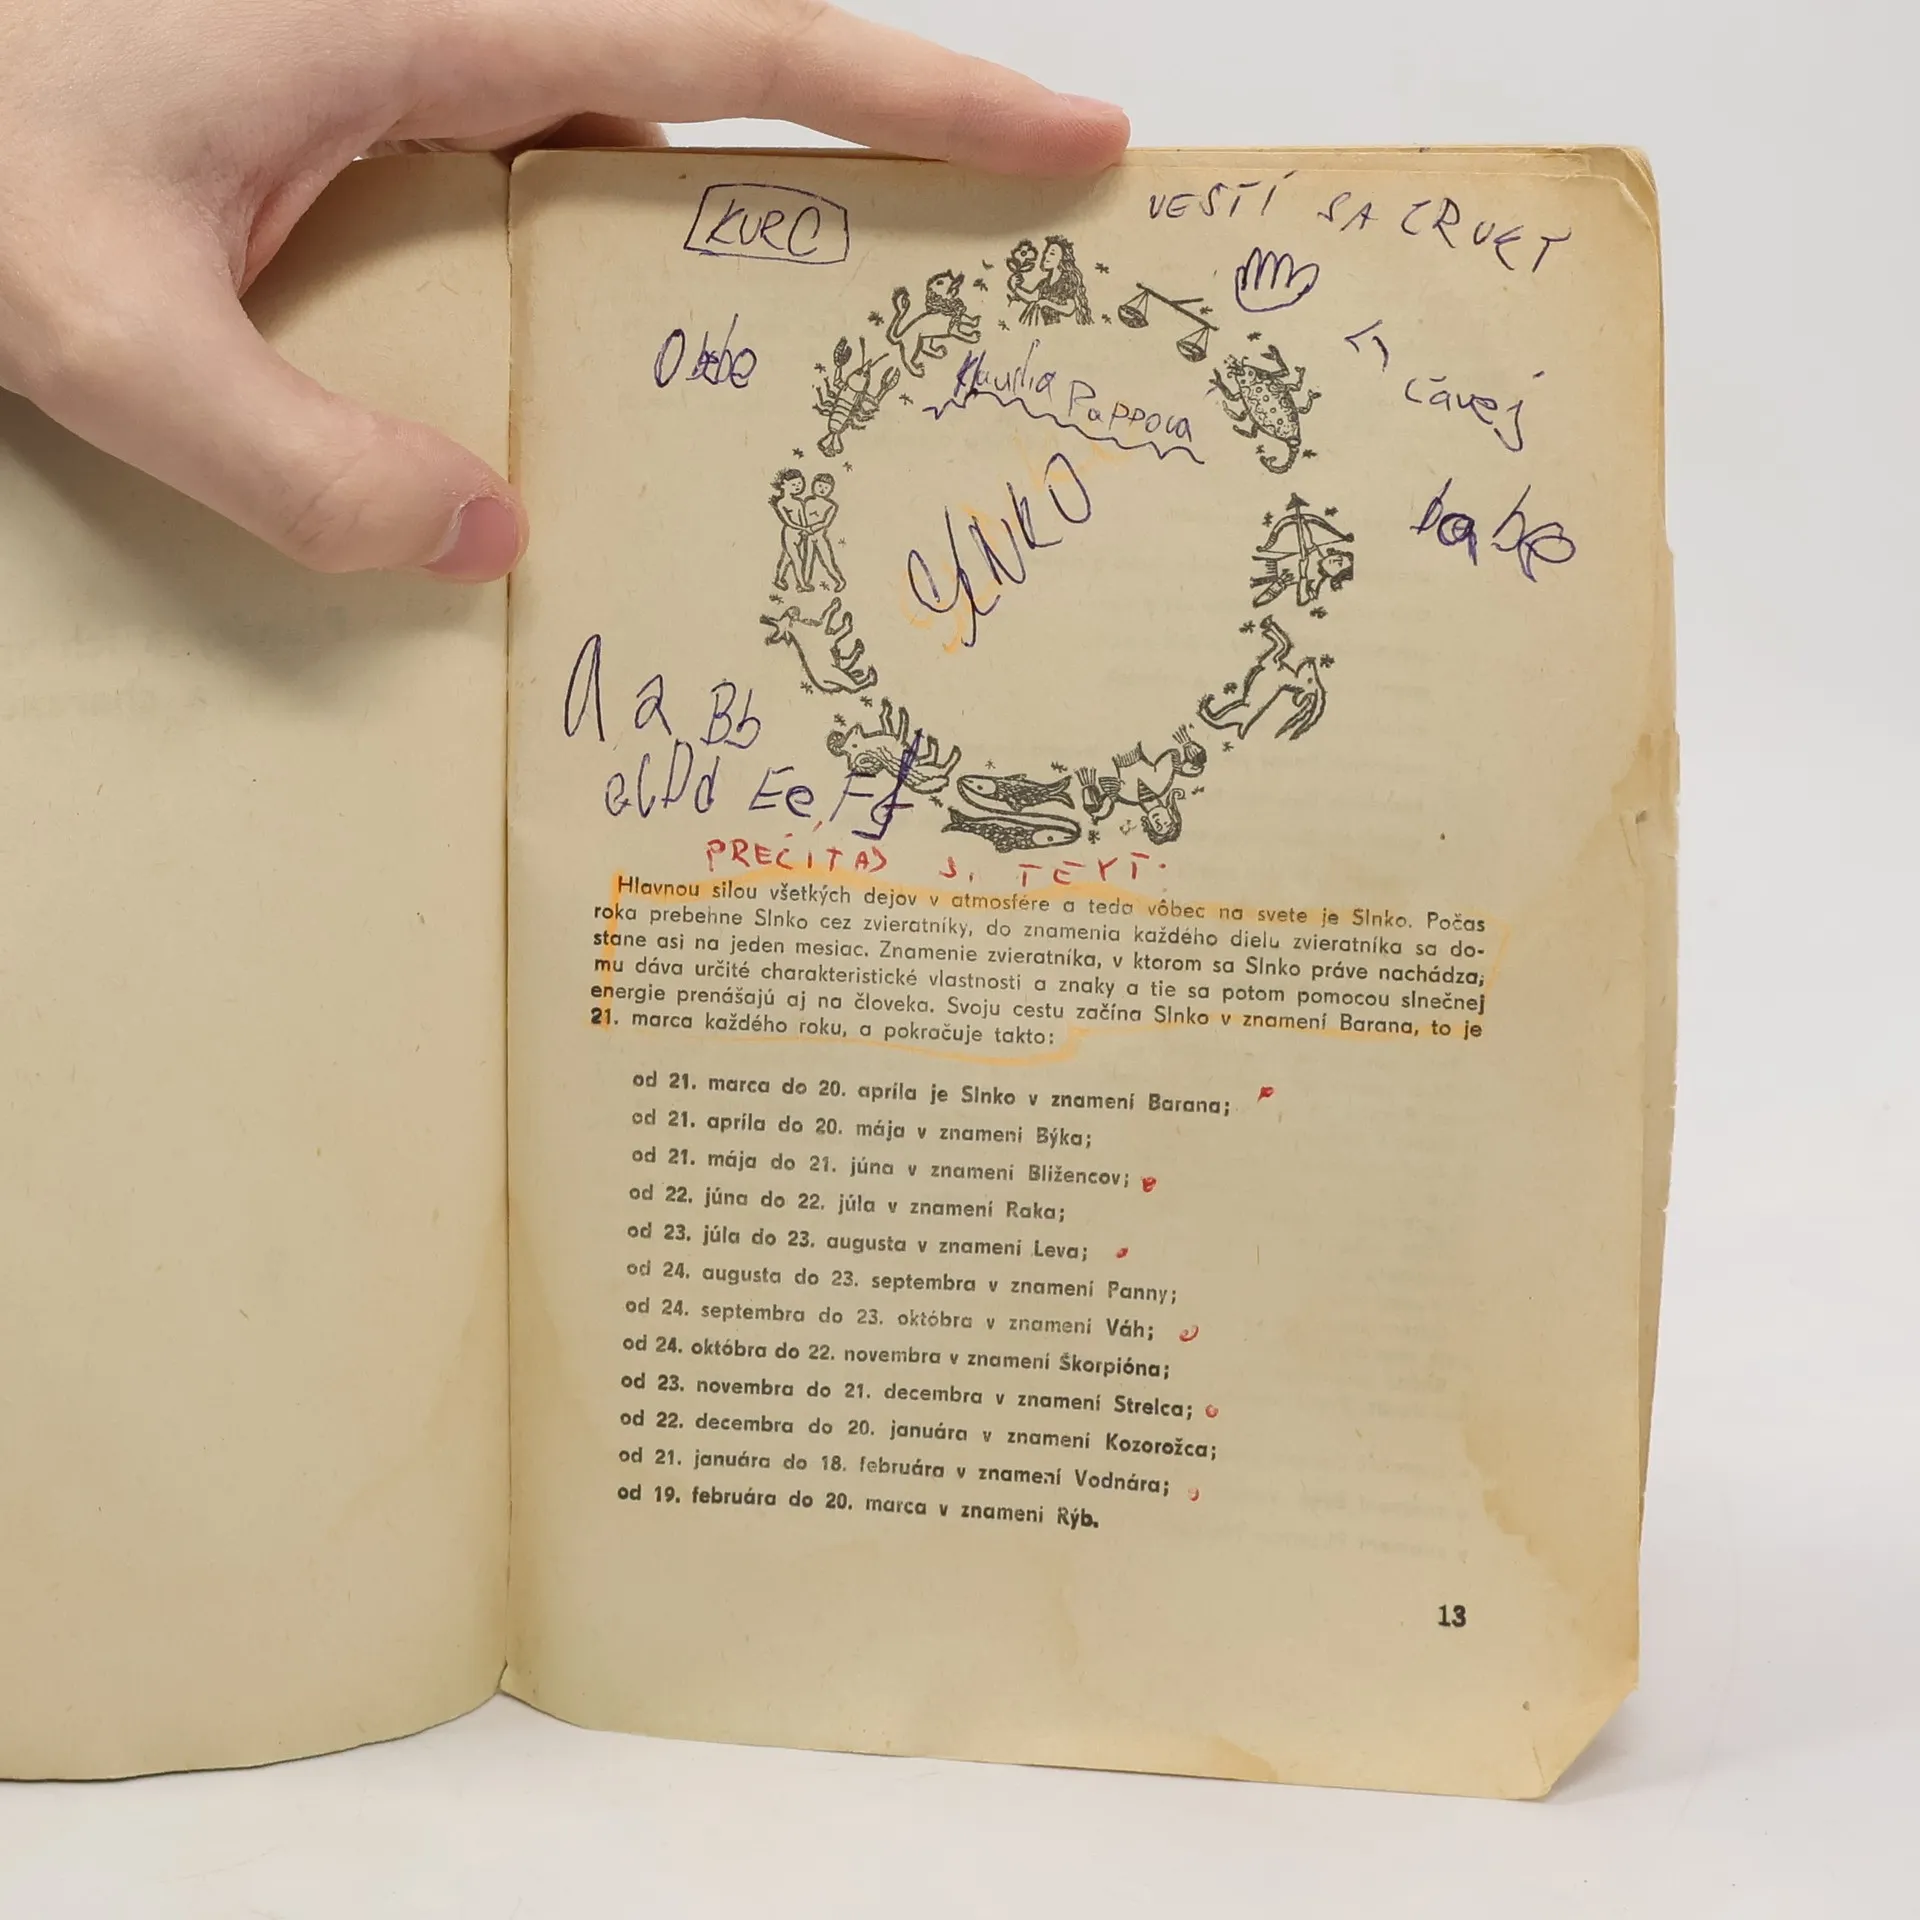 KURC
VESTÍ SA Z RUKY
Klaudia Pappova
čávej
babe
SLNKO
A a Bb
Dd Ee Ff
PREČÍTAJ SI TEXT.
Hlavnou silou všetkých dejov v atmosfére a teda vôbec na svete je Slnko. Počas
roka prebehne Slnko cez zvieratníky, do znamenia každého dielu zvieratníka sa do-
stane asi na jeden mesiac. Znamenie zvieratníka, v ktorom sa Slnko práve nachádza,
mu dáva určité charakteristické vlastnosti a znaky a tie sa potom pomocou slnečnej
energie prenášajú aj na človeka. Svoju cestu začína Slnko v znamení Barana, to je
21. marca každého roku, a pokračuje takto:
od 21. marca do 20. apríla je Slnko v znamení Barana;
od 21. apríla do 20. mája v znamení Býka;
od 21. mája do 21. júna v znamení Bližencov;
od 22. júna do 22. júla v znamení Raka;
od 23. júla do 23. augusta v znamení Leva;
od 24. augusta do 23. septembra v znamení Panny;
od 24. septembra do 23. októbra v znamení Váh;
od 24. októbra do 22. novembra v znamení Škorpióna;
od 23. novembra do 21. decembra v znamení Strelca;
od 22. decembra do 20. januára v znamení Kozorožca;
od 21. januára do 18. februára v znamení Vodnára;
od 19. februára do 20. marca v znamení Rýb.
13